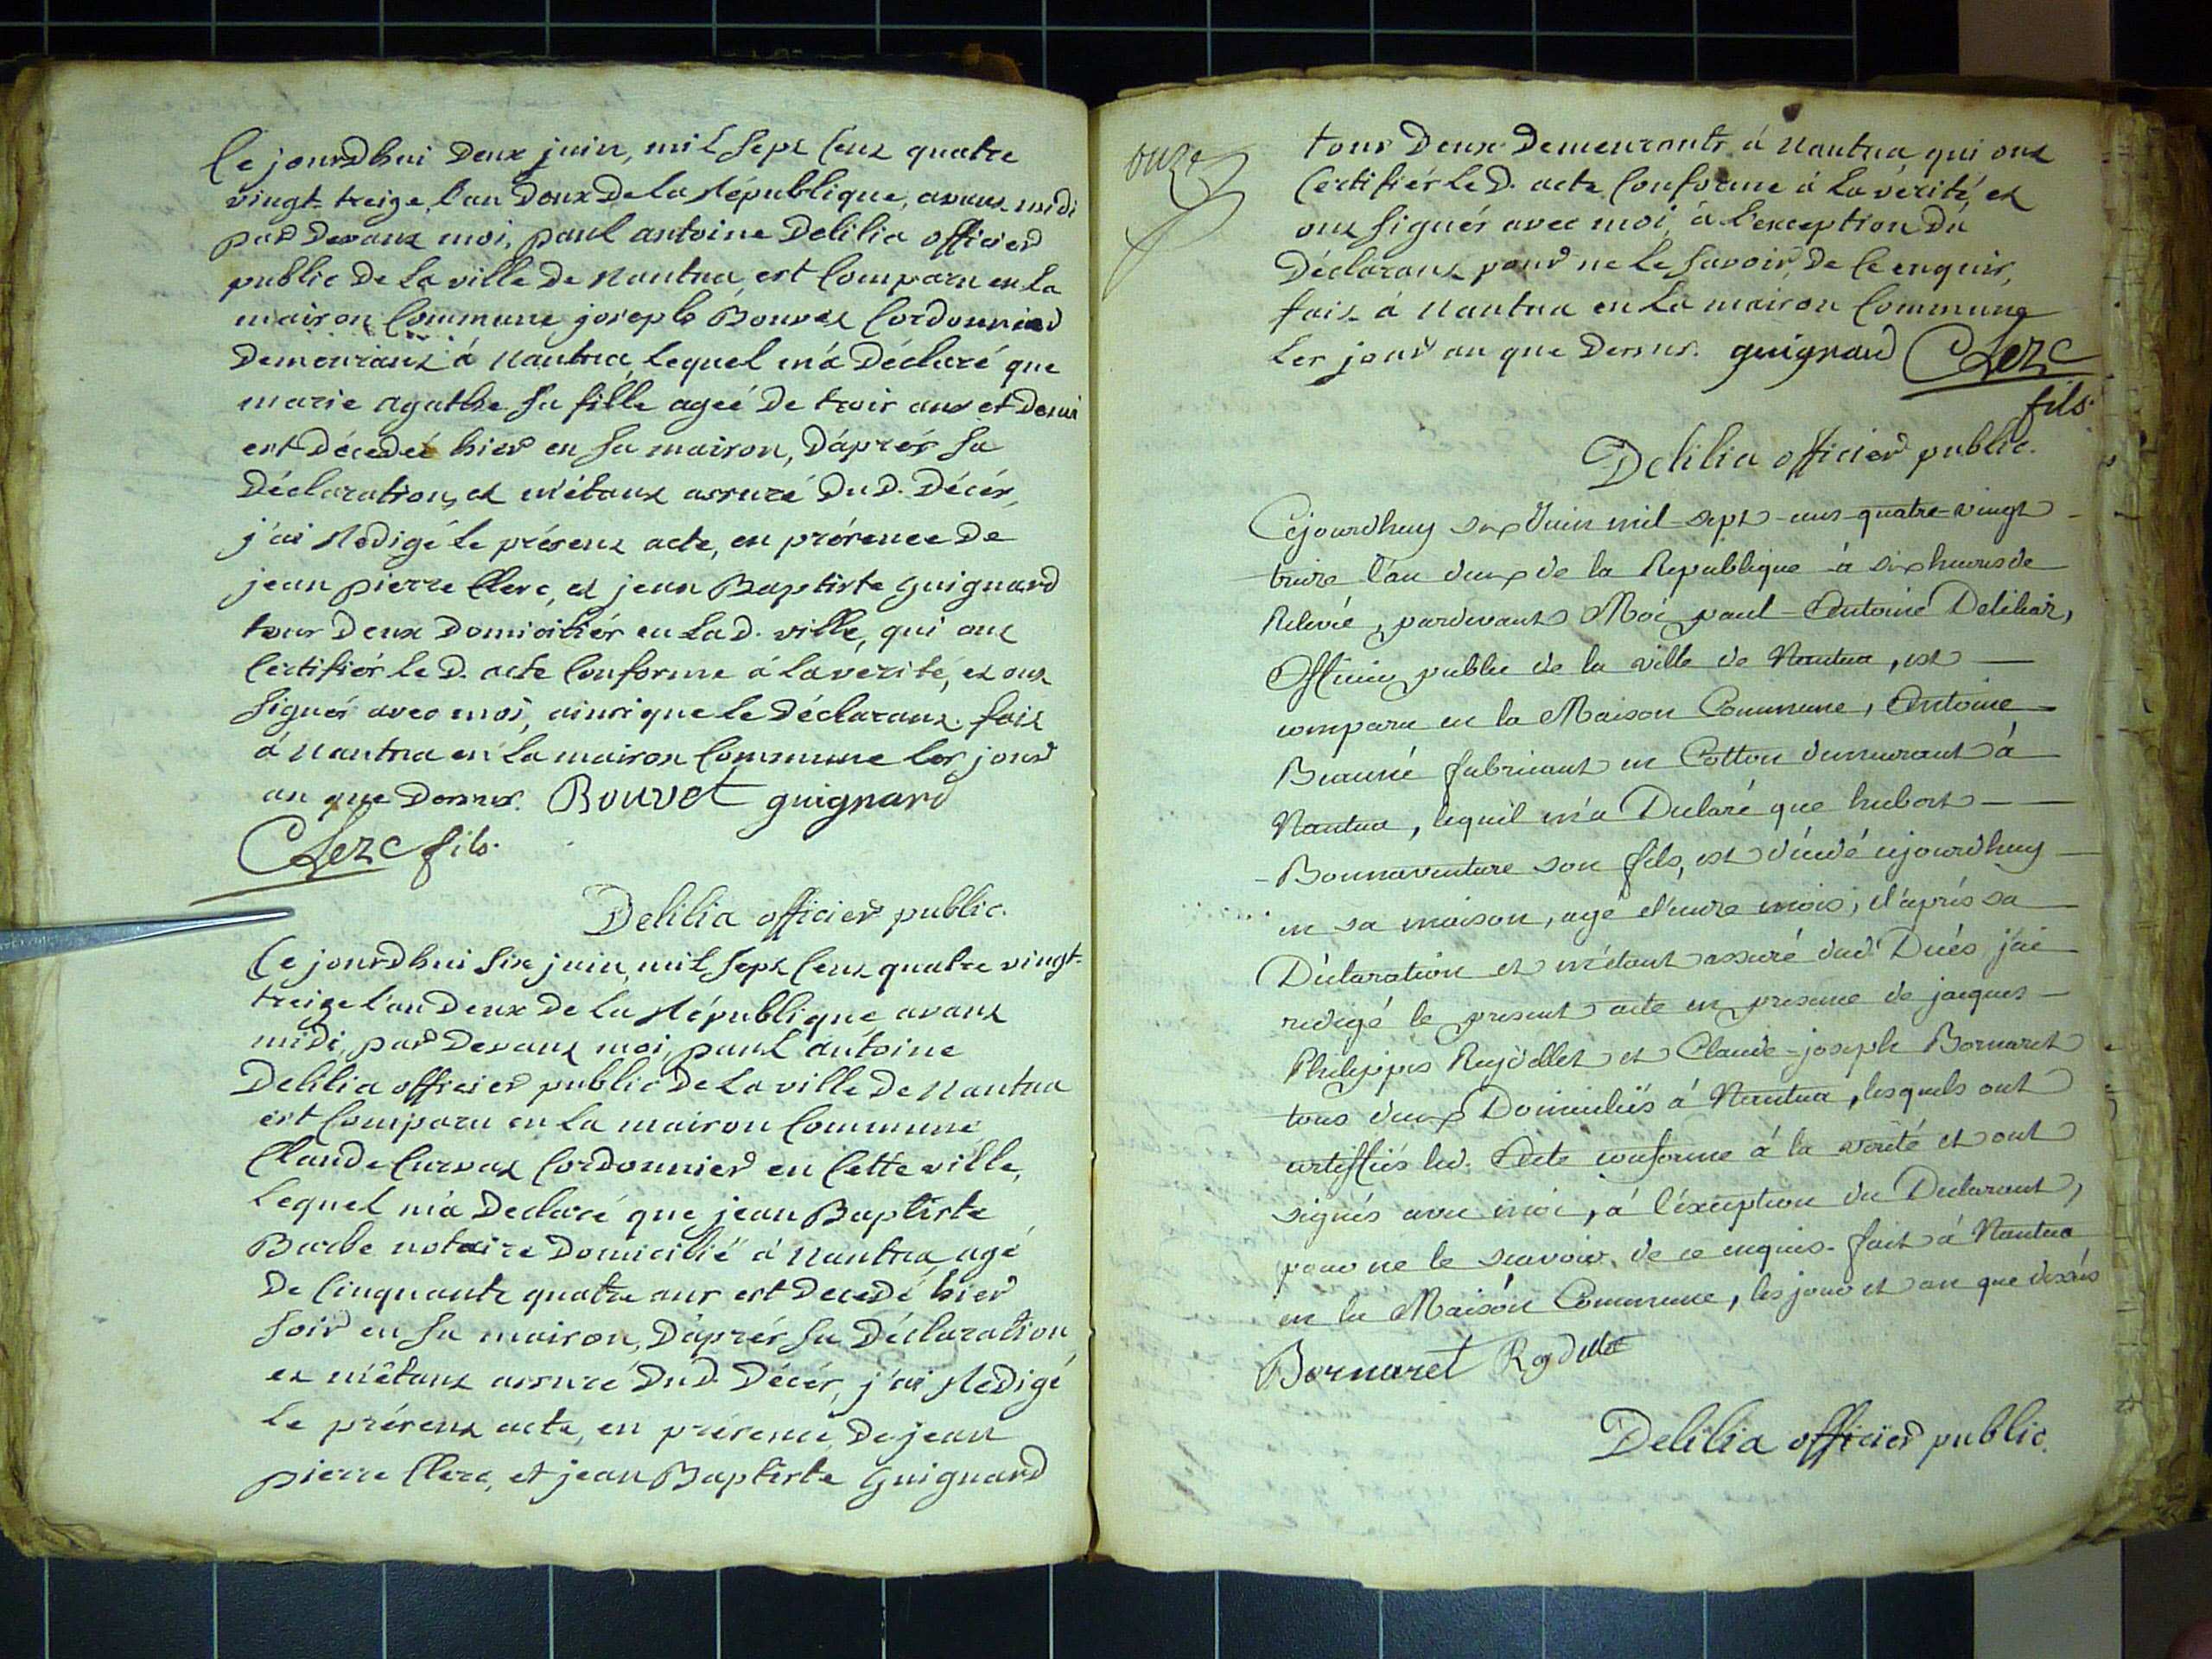 Ce jourdhui deux juin, mil sept cent quatre
vingt-treize, l'an deux de la République, avant midi
par devant moi, paul antoine Delilia officier
public de la ville de Nantua, est Comparu en la
maison Commune joseph Bouvet Cordonnier
demeurant à Nantua, lequel m'a déclaré que
marie agathe sa fille ageé de trois ans et demi
est décedeé hier en sa maison, d'après sa
déclaration, et m'étant assuré dud. décès,
j'ai Rédigé le présent acte, en présence de
jean pierre Clerc, et jean Baptiste guignard
tous deux domiciliés en lad. ville, qui ont
Certifiés led. acte Conforme à la vérité, et ont
signés avec moi, ainsi que le déclarant. fait
à Nantua en la maison Commune les jour
an que dessus. Bouvet guignard
Clerc fils.
Delilia officier public.
Ce jourdhui six juin, mil sept cent quatre vingt-
treize l'an deux de la République avant
midi, par devant moi, paul antoine
Delilia officier public de la ville de Nantua
est Comparu en la maison Commune
Claude Curvat Cordonnier en Cette ville,
lequel m'a déclaré que jean Baptiste
Barbe notaire domicilié à Nantua, agé
de Cinquante quatre ans est décedé hier
soir en sa maison, d'après sa déclaration
et m'étant assuré dud. décès, j'ai Rédigé
le présent acte, en présence de jean
pierre Clerc, et jean Baptiste Guignard
onze
tous deux demeurants à Nantua qui ont
Certifiés led. acte Conforme à la vérité, et
ont signés avec moi, à l'exception du
déclarant pour ne le savoir, de ce enquis,
fait à Nantua en la maison Commune
les jour an que dessus. guignard Clerc
fils.
Delilia officier public.
Cejourdhuy six Juin mil-sept-cens-quatre-vingt
treize l'an deux de la Republique à six heures de
Relevé, pardevant Moi paul-Antoine Delilia,
Officier public de la ville de Nantua, est
comparu en la Maison Commune, Antoine
fabricant en Cotton demeurant à
Nantua, lequel m'a Declaré que hubert
Bonnaventure son fils, est décédé cejourdhuy
en sa maison, agé d'onze mois, d'après sa
Déclaration et m'étant assuré dud. Decés j'ai
redigé le present acte en presence de jacques
Philippes Reydellet et Claude-joseph Bornaret
tous deux Domiciliés à Nantua, lesquels ont
certiffiés led. Acte conforme à la vérité et ont
signés avec moi, à l'éxception du Declarant,
pour ne le scavoir, de ce enquis. fait à Nantua
en la Maison Commune, les jour et an que dessus
Bornaret Reydellet
Delilia officier public.